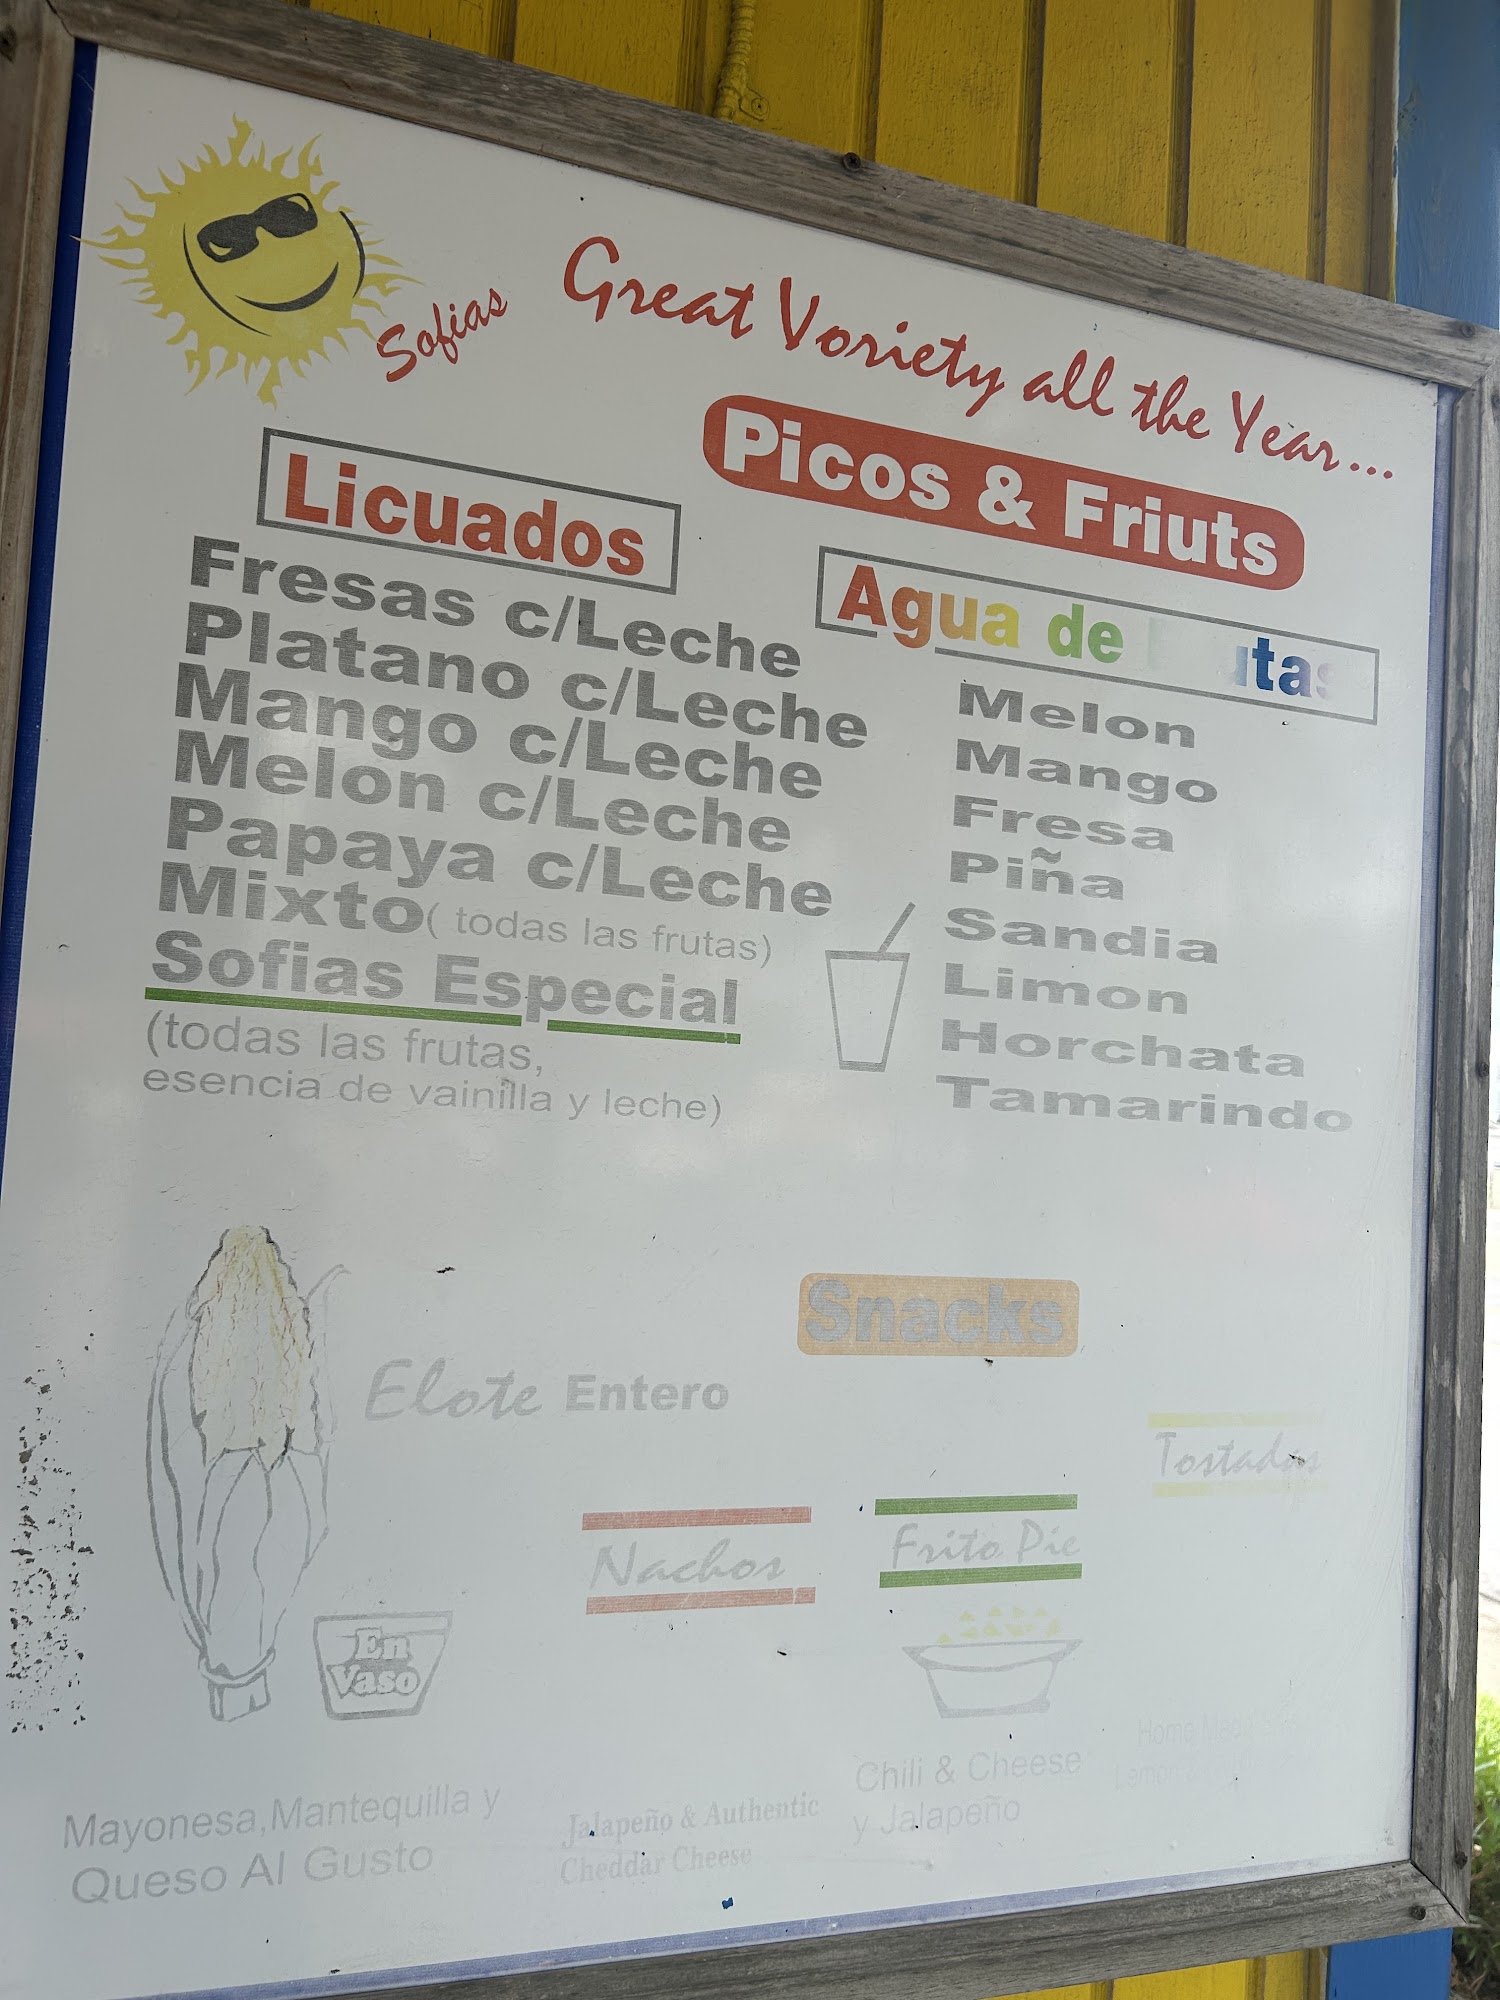 Sofias
Great Voriety all the Year...
Picos & Friuts
Licuados
Fresas c/Leche
Platano c/Leche
Mango c/Leche
Melon c/Leche
Papaya c/Leche
Mixto( todas las frutas)
Sofias Especial
(todas las frutas,
esencia de vainilla y leche)
Agua de
Melon
Mango
Fresa
Piña
Sandia
Limon
Horchata
Tamarindo
Snacks
Elote Entero
En
Vaso
Mayonesa,Mantequilla y
Queso Al Gusto
Nachos
Jalapeño & Authentic
Cheddar Cheese
Frito Pie
Chili & Cheese
y Jalapeño
Tostadas
Home Made
Lemon